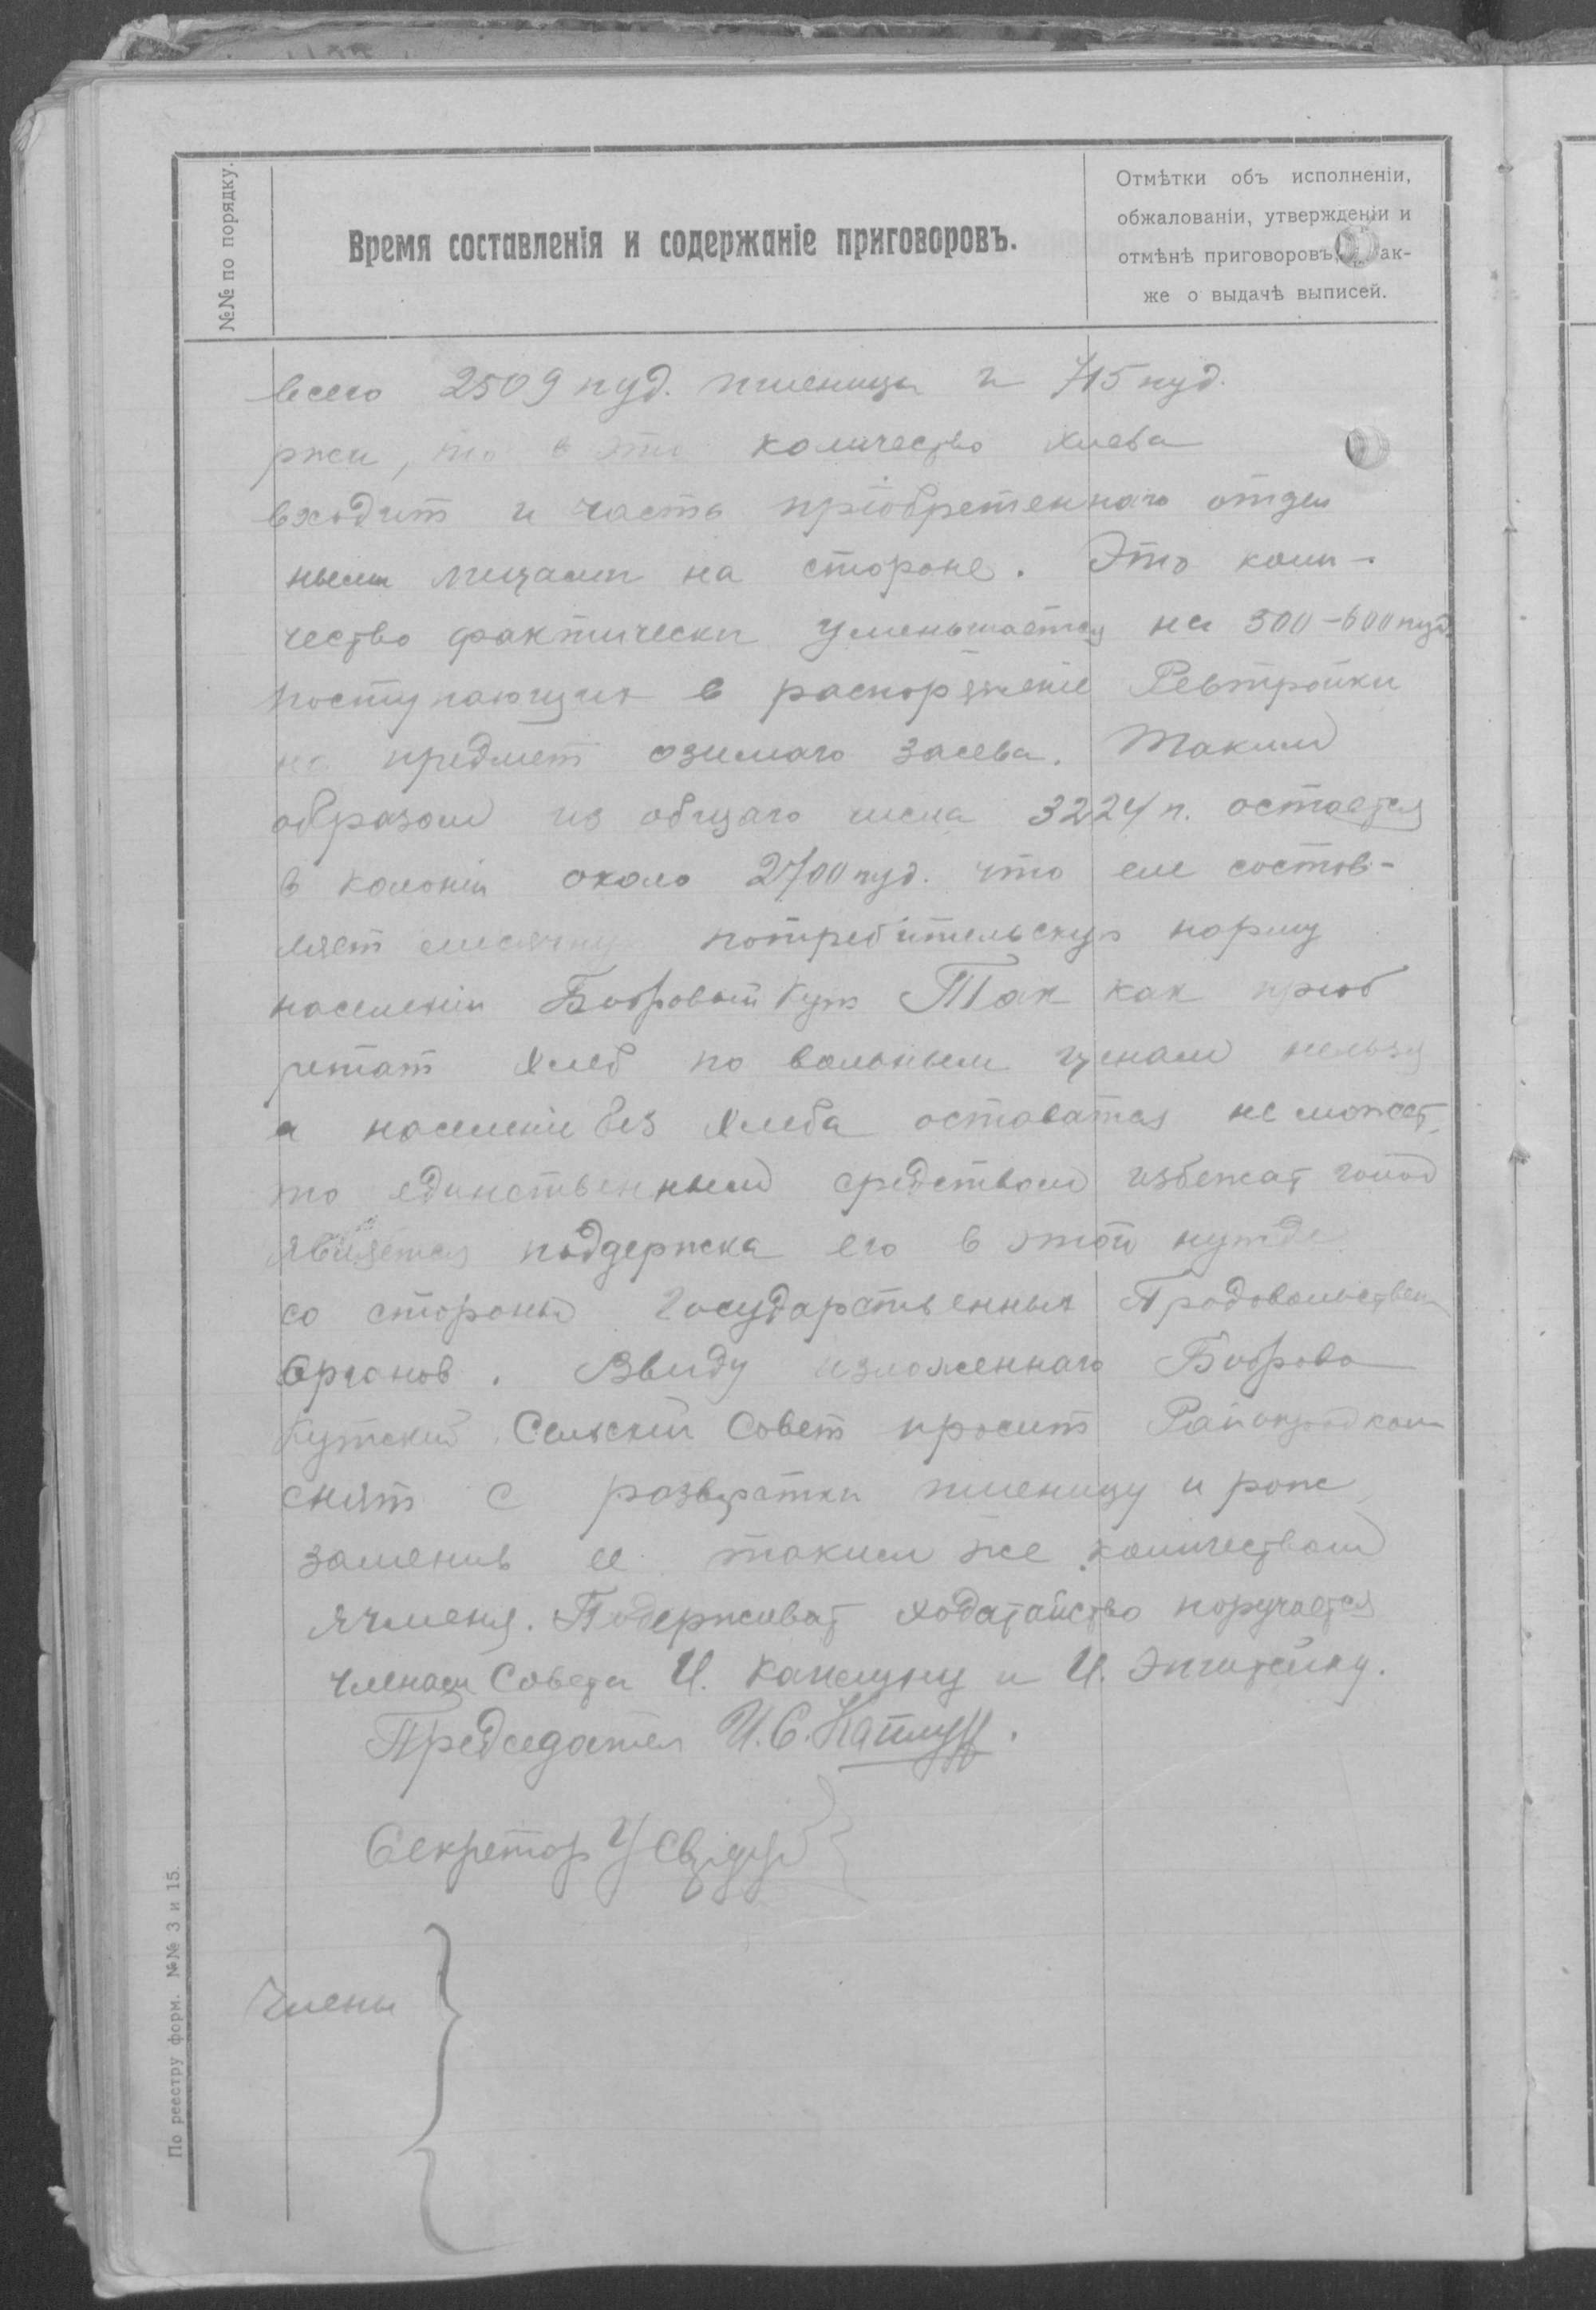 №№ по порядку.
Время составленія и содержаніе приговоровъ.
Отмѣтки объ исполненіи,
обжалованіи, утвержденіи и
отмѣнѣ приговоровъ, ак-
же о выдачѣ выписей.
всего 2509 пуд. пшеницы и 715 пуд.
ржи, то в это количество хлеба
входит и часть пріобретеннаго отдел
ными лицами на стороне. Это коли-
чество фактически уменьшается на 500-600 пуд.
поступающия в распоряжение Ревтройки
на предмет озимаго засева. Таким
образом из общаго числа 3224 п. остается
в колоніи около 2700 пуд. что еле состов-
ляет месячную потребительскую норму
населенія Бобровый Кут Так как приоб
ретат хлеб по вольным ценам нельзя
а населеніе без хлеба остоватся не может,
то единственным средством избежат голод
является поддержка его в этой нужде
со стороны Государственных Продовольствен
Органов. Ввиду изложеннаго Боброво
Кутский Сельский Совет просит Райпродком
снят с розверстки пшеницу и рож
заменив ее таким же количеством
ячменя. Подерживат ходатайство поручается
членам Совета И. Каплуну и И. Эпштейну.
Председател И. С. Каплун.
Секретар
Члены
По реестру форм. №№ 3 и 15.